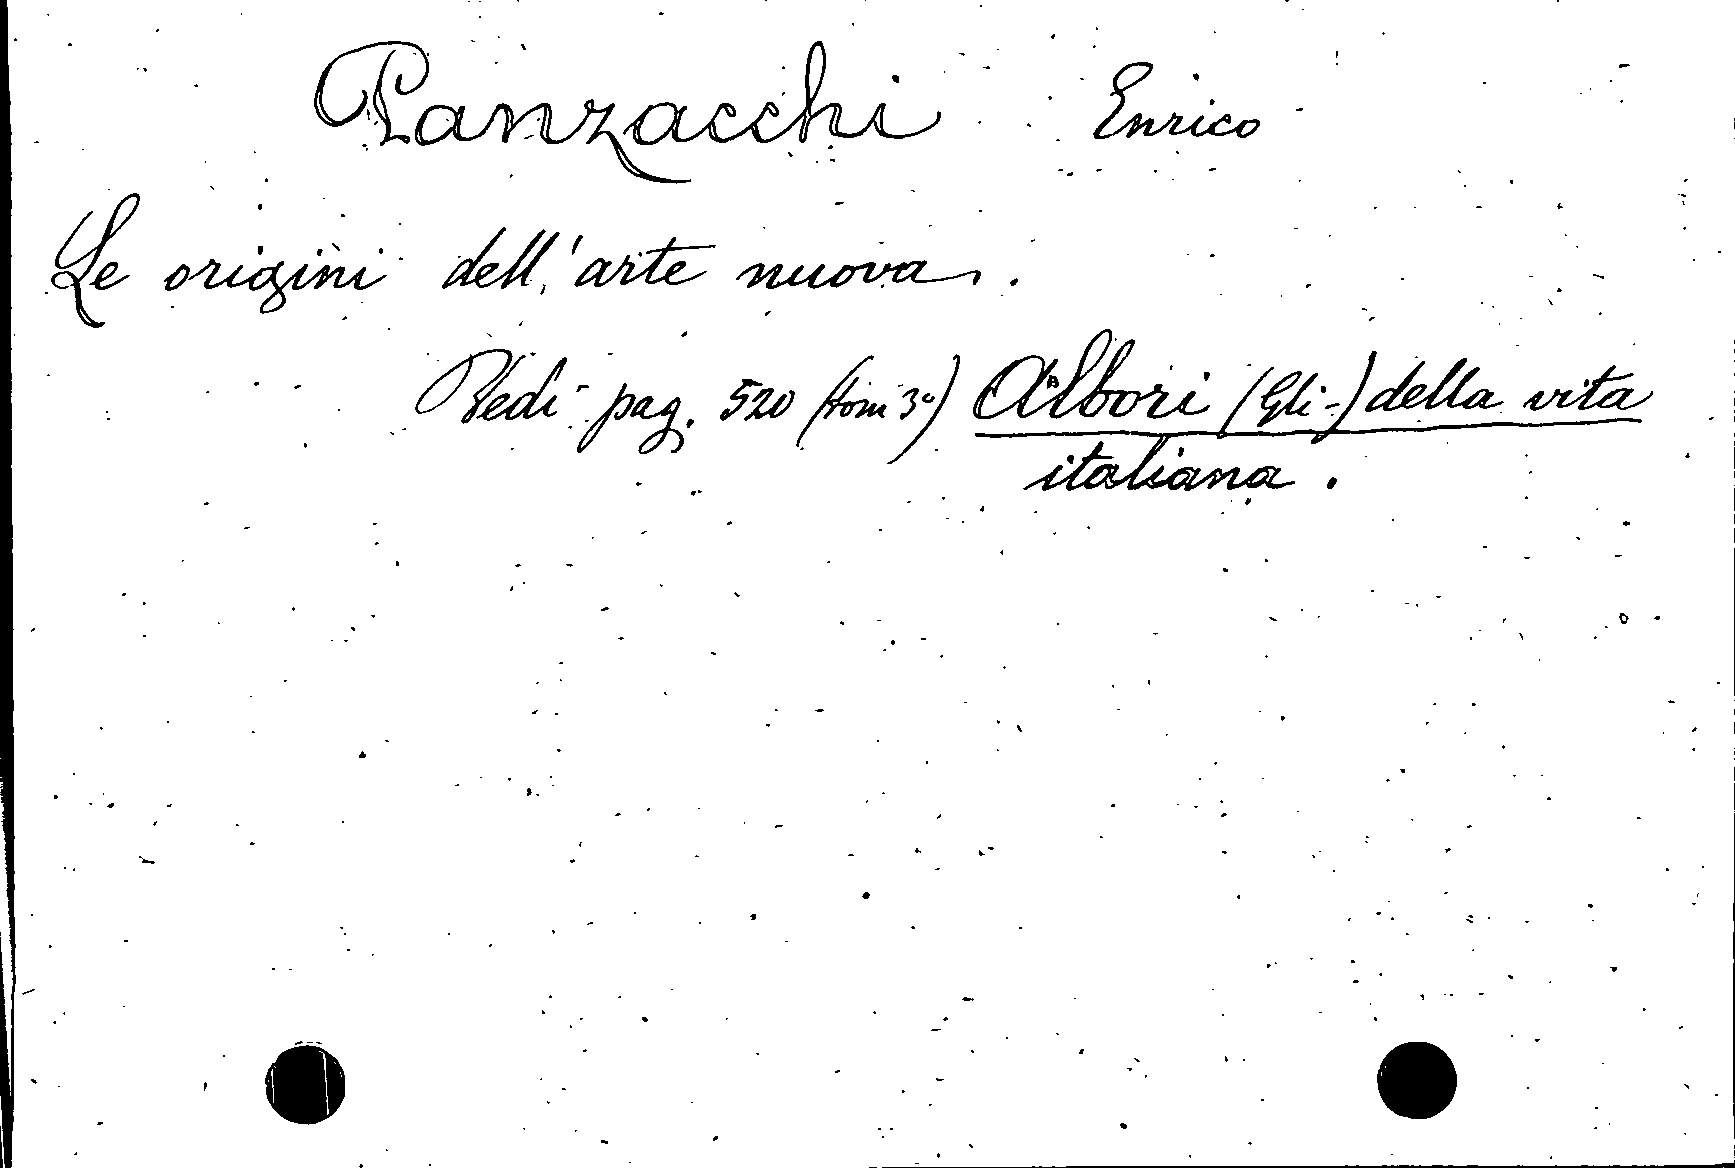 Panzacchi Enrico
Le origini dell'arte nuova.
Vedi pag. 520 (tom 3º) Albori (Gli-) della vita
italiana.